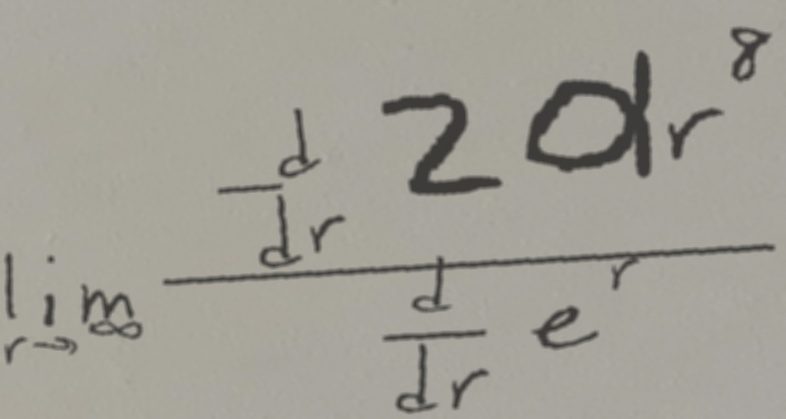 \lim_{r \to \infty} \frac{\frac{d}{dr} 2dr^8}{\frac{d}{dr} e^r}